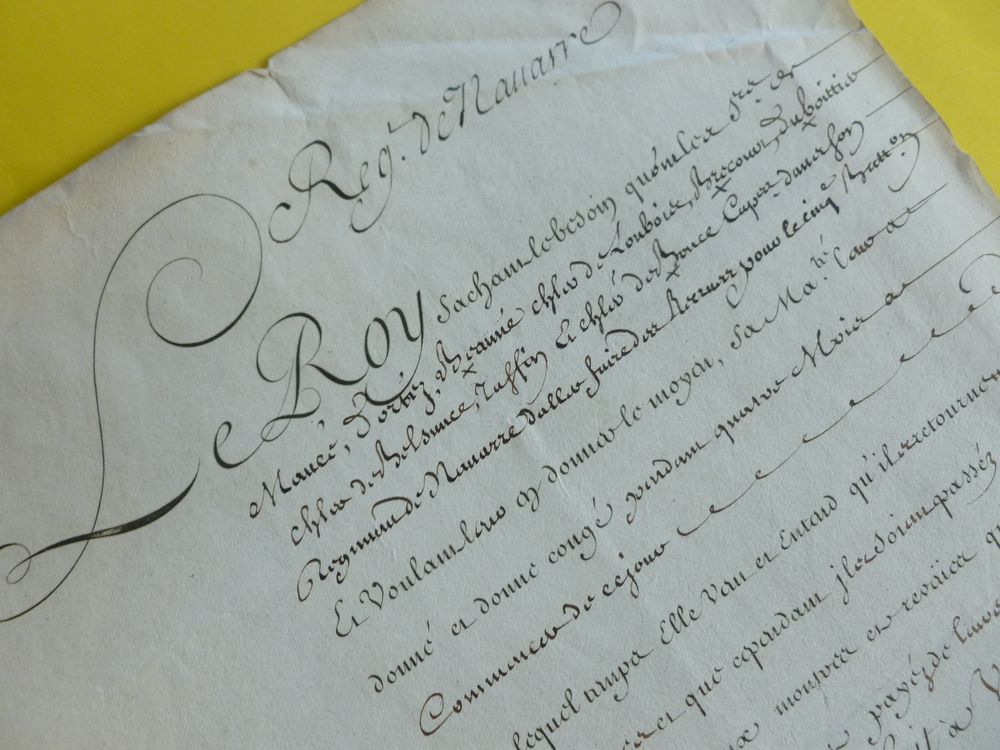 Reg.t de Navarre
Le Roy sachant le besoin qu'ont les Srs
Mancé, Beaunié chler de Bricour, Duboittier
chler de Belsunce, Taffin et chler de Bonce Capnes dans son
Regiment de Navarre d'aller faire des Recrues pour le cinqe Batt.on
Et Voulant leur en donner le moyen, Sa Ma.té leur a
donné et donne congé pendant quatre Mois a
Commencer de ce jour
lequel temps Elle Veut et Entend qu'ils retournent
et que cependant ils soient passéz
monstres et reveües
payéz de leurs
à